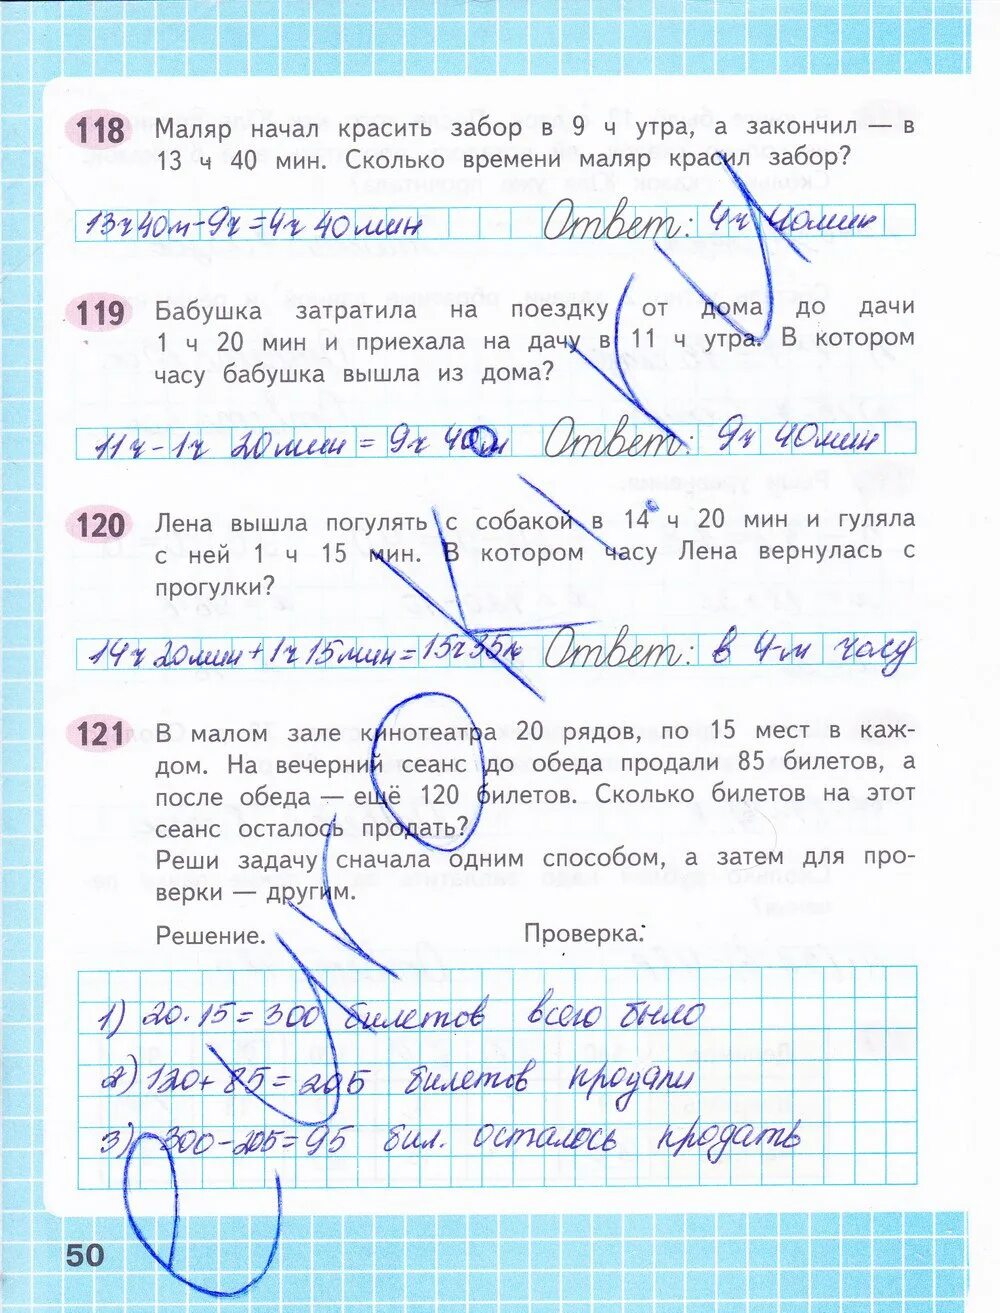 118 Маляр начал красить забор в 9 ч утра, а закончил — в
13 ч 40 мин. Сколько времени маляр красил забор?
13ч40м-9ч=4ч 40мин Ответ: 4ч 40мин
119 Бабушка затратила на поездку от дома до дачи
1 ч 20 мин и приехала на дачу в 11 ч утра. В котором
часу бабушка вышла из дома?
11ч-1ч 20мин = 9ч 40м Ответ: 9ч 40мин
120 Лена вышла погулять с собакой в 14 ч 20 мин и гуляла
с ней 1 ч 15 мин. В котором часу Лена вернулась с
прогулки?
14ч 20мин+1ч15мин=15ч35м Ответ: в 4-м часу
121 В малом зале кинотеатра 20 рядов, по 15 мест в каж-
дом. На вечерний сеанс до обеда продали 85 билетов, а
после обеда — ещё 120 билетов. Сколько билетов на этот
сеанс осталось продать?
Реши задачу сначала одним способом, а затем для про-
верки — другим.
Решение. Проверка:
1) 20·15=300 билетов всего было
2) 120+85=205 билетов продали
3) 300-205=95 бил. осталось продать
50